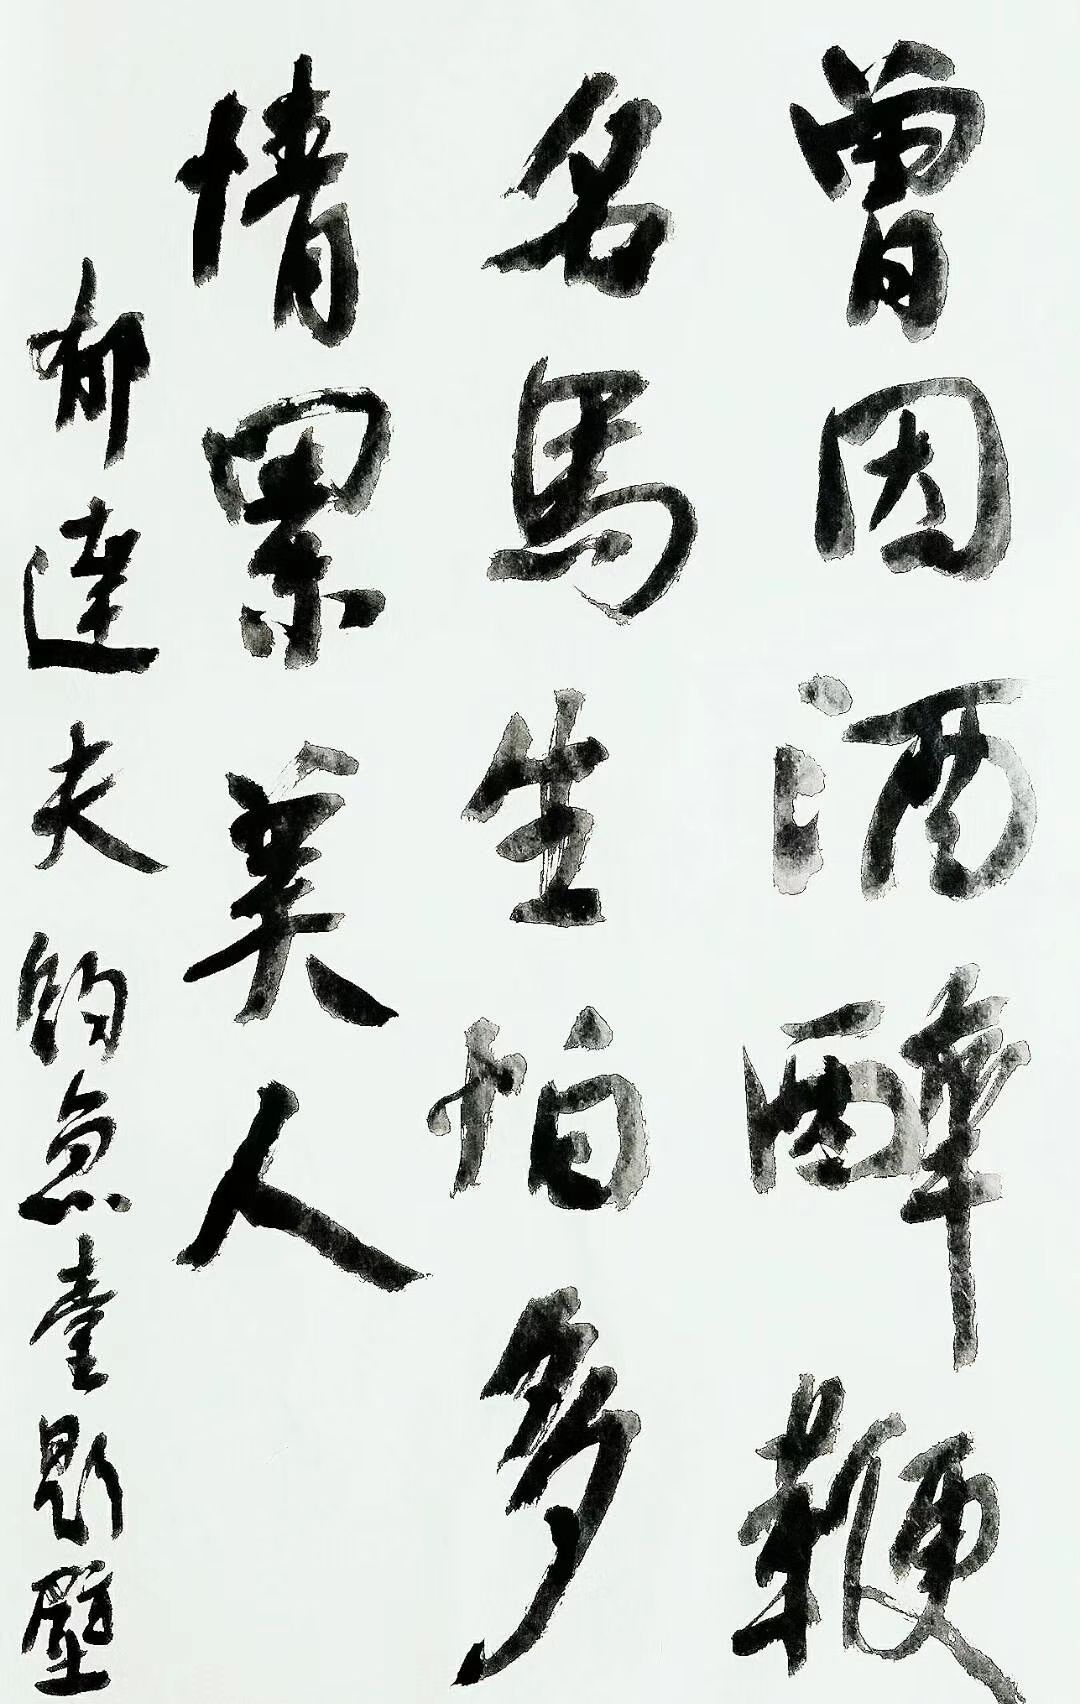 曾因酒醉鞭
名馬生怕多
情累美人
郁達夫钓魚臺題壁